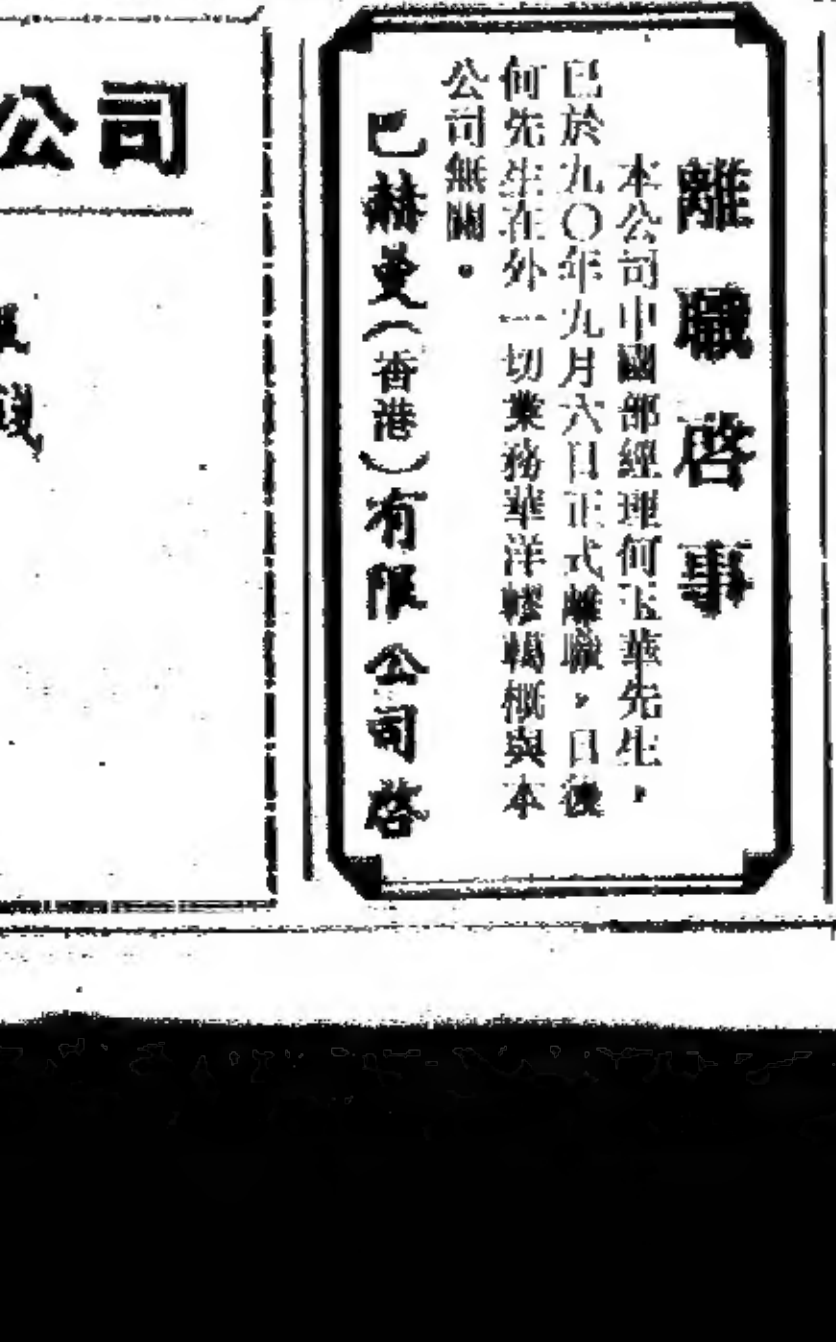 離職啓事
本公司中國部經理何玉華先生，
已於九〇年九月六日正式離職，日後
何先生在外一切業務華洋轇轕概與本
公司無關。
巴赫曼(香港)有限公司啓
公司